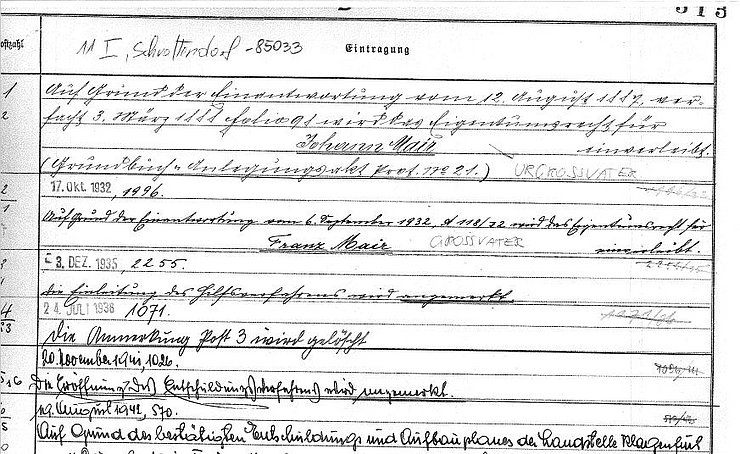 515
ostzahl
11 I, Schrottendorf - 85033
Eintragung
1 Auf Grund der Einantwortung vom 12. August 1887, ver-
2 facht 3. März 1888 folio 91 wird das Eigentumsrecht für
Johann Mair einverleibt.
(Grundbuch-Anlegungsakt Prot. No 21.) URGROSSVATER
2 17. Okt. 1932, 1996.
1 Auf Grund der Einantwortung vom 6. September 1932, A 118/32 wird das Eigentumsrecht für
Franz Mair GROSSVATER einverleibt.
3 - 3. DEZ. 1935, 2255.
die Einleitung des Hilfsverfahrens wird angemerkt.
4 24. JULI 1936 1071.
die Anmerkung Post 3 wird gelöscht
20. November 1941, 1026.
5 Die Eröffnung des Entschuldungsverfahrens wird angemerkt.
6 19. August 1942, 570.
Auf Grund des bestätigten Entschuldungs und Aufbauplanes der Landstelle Klagenfurt